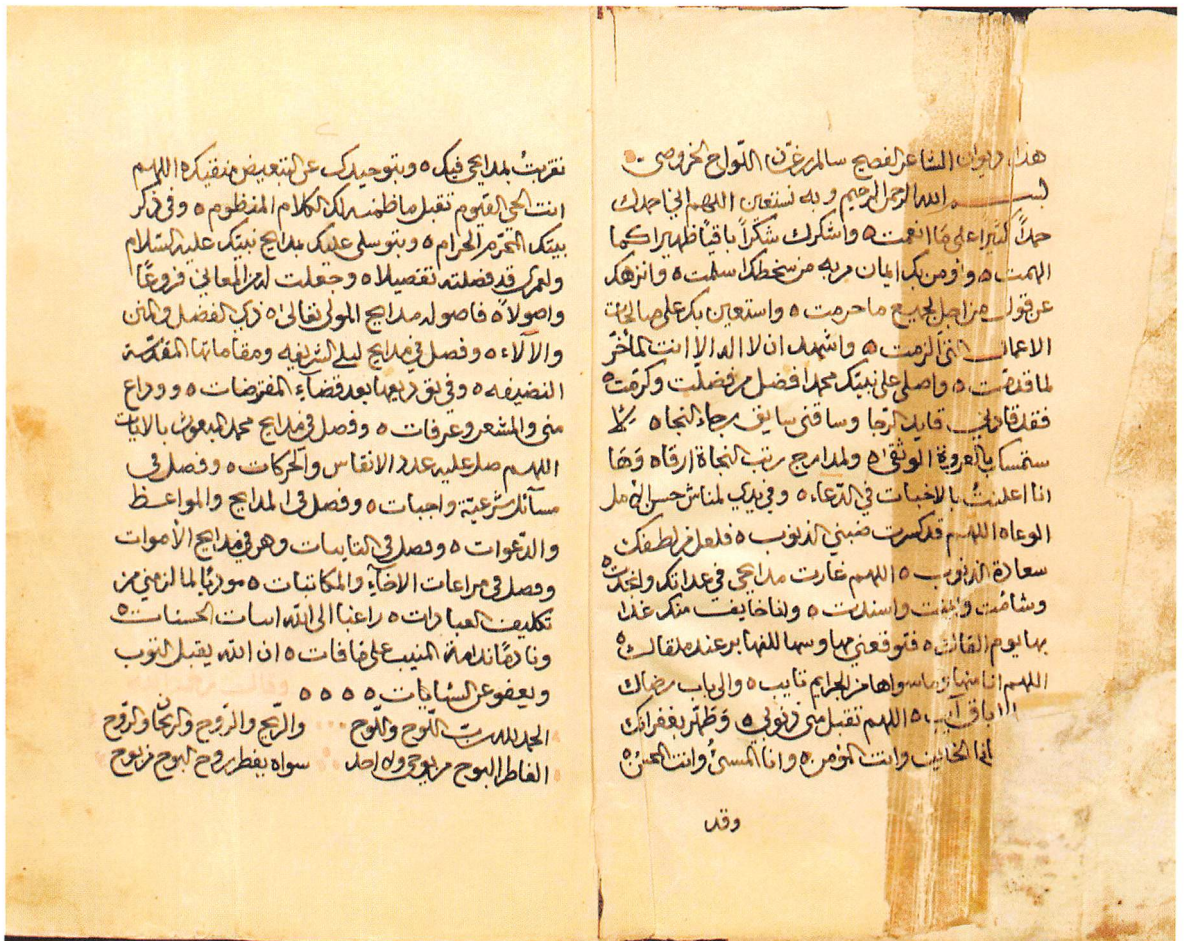 هذا ديوان الشاعر الفصيح سالم بن غسان اللواح الخروصي
بسم الله الرحمن الرحيم وبه نستعين اللهم اني احمدك
حمداً كثيراً على ما انعمت ه واشكرك شكراً باقياً ظهيرا كما
الهمت ه واومن بك ايمان من به من سخطك اسلمت ه وانزهك
عن قول من اجل لجميع ما حرمت ه واستعين بك على صالحات
الاعمال التي الزمت ه واشهد ان لا اله الا انت المأخّر
لما قدمت ه واصلي على نبيتك محمد افضل من فضلت وكرمت ه
فقد قادني قايد الرجا وساقني سايق رجاء النجا ه
ستمسكا بالعروة الوثقى ه ولمدارج رتب النجاة ارقاه وها
انا اعلنت بالاخبات في الدعاء ه وفي يدي لمناش حسن
الوعاه اللهم قد كسرت ضبني الذنوب ه فلعل من لطفك
سعادة الذنوب ه اللهم غارت مدايحي في عداتك وانجدت ه
وشامت وايمنت واسندت ه وانا خايف منك غدا
بها يوم القاك ه فتوقعني بها وسها للفها بر عند ملقاك ه
اللهم انا منها وما سواها من الجرايم تايب ه والى باب مرضاك
اباق آيب ه اللهم تقبل مني ذنوبي ه وطهر بغفرانك
انا الخايف وانت المؤمن ه وانا المسئ وانت المحسن ه
وقد
تقربت بمدايحي فيك ه وبتوحيدك عن التبعيض منفيك ه اللهم
انت الحي القيوم تقبل ما نظمته لك الكلام المنظوم ه وفي ذكر
بيتك المحرم الحرام ه وبتوسلي عليك بمدايح نبيتك عليه السلام
ولعمري قد فصلته تفصيلا ه وجعلت لرمز المعاني فروعاً
واصولا ه فاصوله مدايح المولى تعالى ه ذي الفضل والمنن
والآلاء ه وفصل في مدايح ليلى الشريفه ومقاماتها المقدسة
النضيفه ه وفي توديعها بعد قضاء المفترضات ه ووداع
منى والمشعر وعرفات ه وفصل في مدايح محمد المبعوث بالايات
اللهم صل عليه عدد الانفاس والحركات ه وفصل في
مسآئل شرعية واجبات ه وفصل في المدايح والمواعظ
والدعوات ه وفصل في التابينات وهي في مدايح الأموات
وفصل في مراعات الاخاء والمكاتبات ه موديًا لما لزمني من
تكليف العبادات ه راغبا الى الله اسات الحسنات ه
ونادمًا ندامة المنيب على ما فات ه ان الله يقبل التوب
ويعفو عن السئايات ه ه ه ه
الحمد لله رب اللوح واللوح والريح والروح والريحان والروح
الفاطر البوح من يوحى وله احد سواه يفطر بروح البوح من يوح